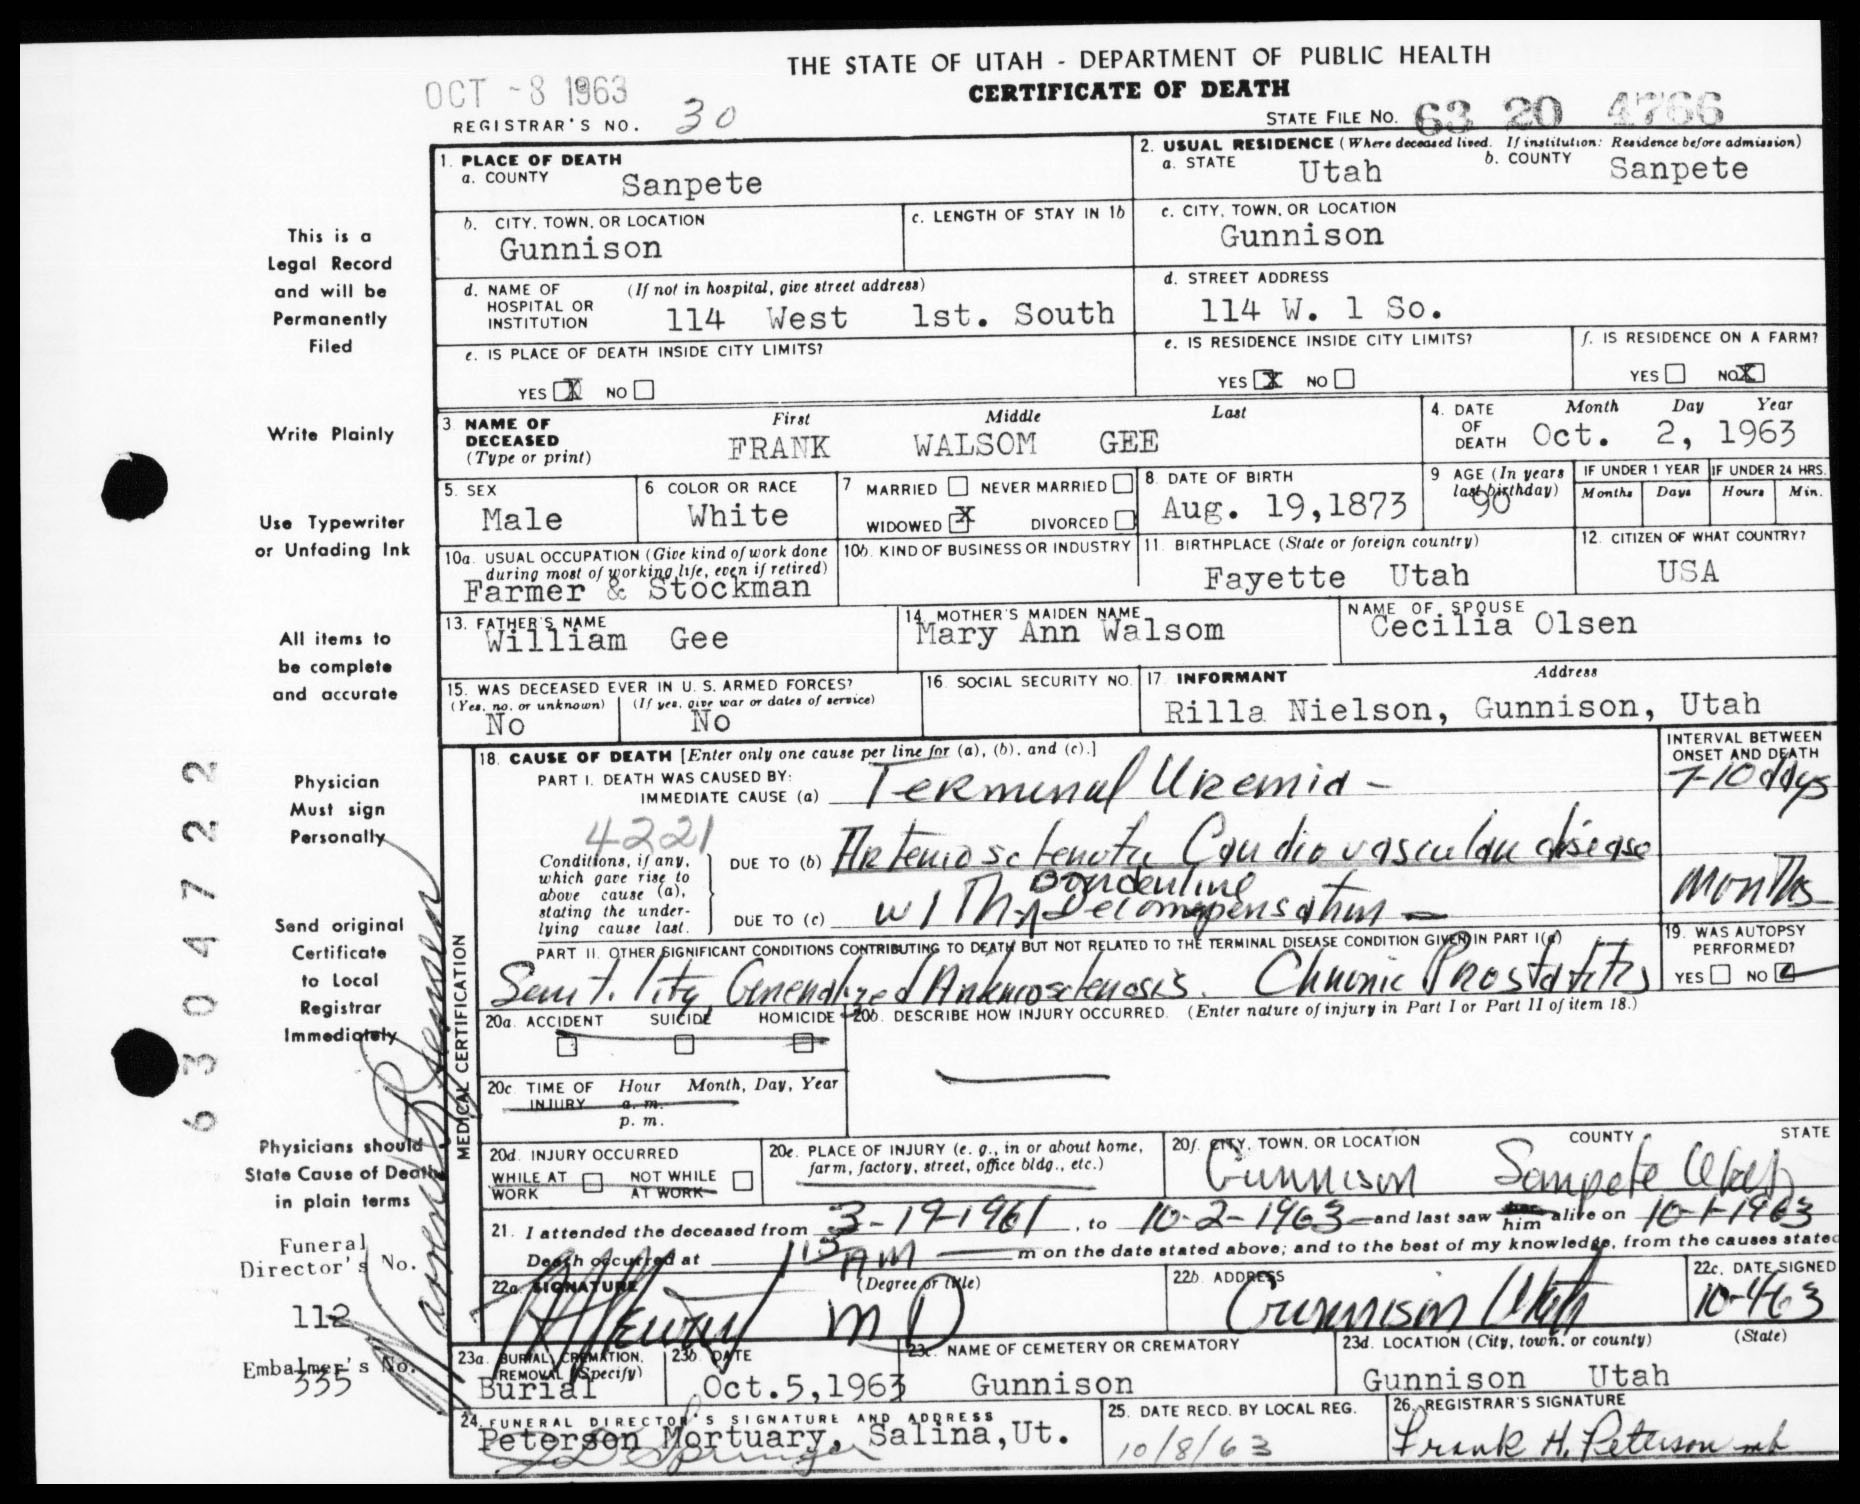 THE STATE OF UTAH - DEPARTMENT OF PUBLIC HEALTH
CERTIFICATE OF DEATH
OCT -8 1963
REGISTRAR'S NO. 30
STATE FILE NO. 63 20 4766
1. PLACE OF DEATH
a. COUNTY Sanpete
2. USUAL RESIDENCE (Where deceased lived. If institution: Residence before admission)
a. STATE Utah b. COUNTY Sanpete
b. CITY, TOWN, OR LOCATION
Gunnison
c. LENGTH OF STAY IN 1b
c. CITY, TOWN, OR LOCATION
Gunnison
d. NAME OF HOSPITAL OR INSTITUTION (If not in hospital, give street address)
114 West 1st. South
d. STREET ADDRESS
114 W. 1 So.
e. IS PLACE OF DEATH INSIDE CITY LIMITS?
YES X NO
e. IS RESIDENCE INSIDE CITY LIMITS?
YES X NO
f. IS RESIDENCE ON A FARM?
YES NO X
3 NAME OF DECEASED (Type or print)
First Middle Last
FRANK WALSOM GEE
4. DATE OF DEATH Month Day Year
Oct. 2, 1963
5. SEX
Male
6 COLOR OR RACE
White
7 MARRIED NEVER MARRIED
WIDOWED X DIVORCED
8. DATE OF BIRTH
Aug. 19,1873
9 AGE (In years last birthday)
90
IF UNDER 1 YEAR
Months Days
IF UNDER 24 HRS.
Hours Min.
10a. USUAL OCCUPATION (Give kind of work done during most of working life, even if retired)
Farmer & Stockman
10b. KIND OF BUSINESS OR INDUSTRY
11. BIRTHPLACE (State or foreign country)
Fayette Utah
12. CITIZEN OF WHAT COUNTRY?
USA
13. FATHER'S NAME
William Gee
14. MOTHER'S MAIDEN NAME
Mary Ann Walsom
NAME OF SPOUSE
Cecilia Olsen
15. WAS DECEASED EVER IN U. S. ARMED FORCES?
(Yes, no, or unknown) (If yes, give war or dates of service)
No No
16. SOCIAL SECURITY NO.
17 INFORMANT Address
Rilla Nielson, Gunnison, Utah
MEDICAL CERTIFICATION
18. CAUSE OF DEATH [Enter only one cause per line for (a), (b), and (c).]
INTERVAL BETWEEN ONSET AND DEATH
PART I. DEATH WAS CAUSED BY:
IMMEDIATE CAUSE (a) Terminal Uremia -
7-10 days
4221
Conditions, if any, which gave rise to above cause (a), stating the underlying cause last.
DUE TO (b) Arteriosclerotic Cardiovascular disease
DUE TO (c) with borderline Decompensation -
Months
PART II. OTHER SIGNIFICANT CONDITIONS CONTRIBUTING TO DEATH BUT NOT RELATED TO THE TERMINAL DISEASE CONDITION GIVEN IN PART I(a)
Senility, Generalized Arteriosclerosis. Chronic Prostatitis
19. WAS AUTOPSY PERFORMED?
YES NO
20a. ACCIDENT SUICIDE HOMICIDE
20b. DESCRIBE HOW INJURY OCCURRED. (Enter nature of injury in Part I or Part II of item 18.)
20c TIME OF INJURY Hour Month, Day, Year
a. m.
p. m.
20d. INJURY OCCURRED
WHILE AT WORK NOT WHILE AT WORK
20e. PLACE OF INJURY (e. g., in or about home, farm, factory, street, office bldg., etc.)
20f. CITY, TOWN, OR LOCATION COUNTY STATE
Gunnison Sanpete Utah
21. I attended the deceased from 3-19-1961, to 10-2-1963 and last saw her him alive on 10-1-1963
Death occurred at 1 15 AM m on the date stated above; and to the best of my knowledge, from the causes stated
22a. SIGNATURE (Degree or title)
MD
22b. ADDRESS
Gunnison Utah
22c. DATE SIGNED
10-4-63
23a. BURIAL, CREMATION, REMOVAL (Specify)
Burial
23b. DATE
Oct.5,1963
23c. NAME OF CEMETERY OR CREMATORY
Gunnison
23d. LOCATION (City, town, or county) (State)
Gunnison Utah
24. FUNERAL DIRECTOR'S SIGNATURE AND ADDRESS
Peterson Mortuary, Salina,Ut.
25. DATE RECD. BY LOCAL REG.
10/8/63
26. REGISTRAR'S SIGNATURE
Frank H. Peterson
This is a
Legal Record
and will be
Permanently
Filed
Write Plainly
Use Typewriter
or Unfading Ink
All items to
be complete
and accurate
Physician
Must sign
Personally
Send original
Certificate
to Local
Registrar
Immediately
Physicians should
State Cause of Death
in plain terms
Funeral
Director's No.
112
Embalmer's No.
335
6304722